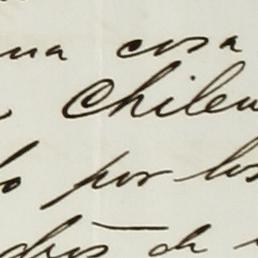 una cosa
Chilen
o por los
dros de